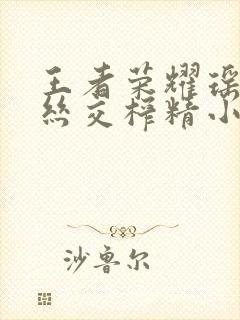 王者荣耀瑶
丝交榨精小
沙鲁尔